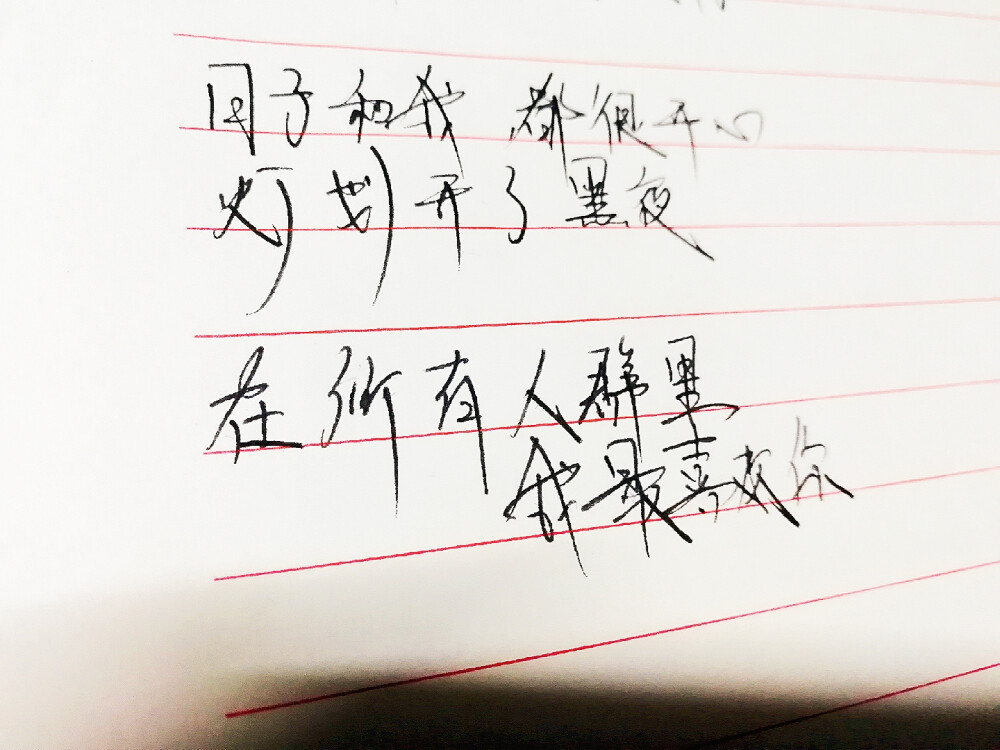 日子和我 都很开心
灯划开了黑夜
在所有人群里
我最喜欢你